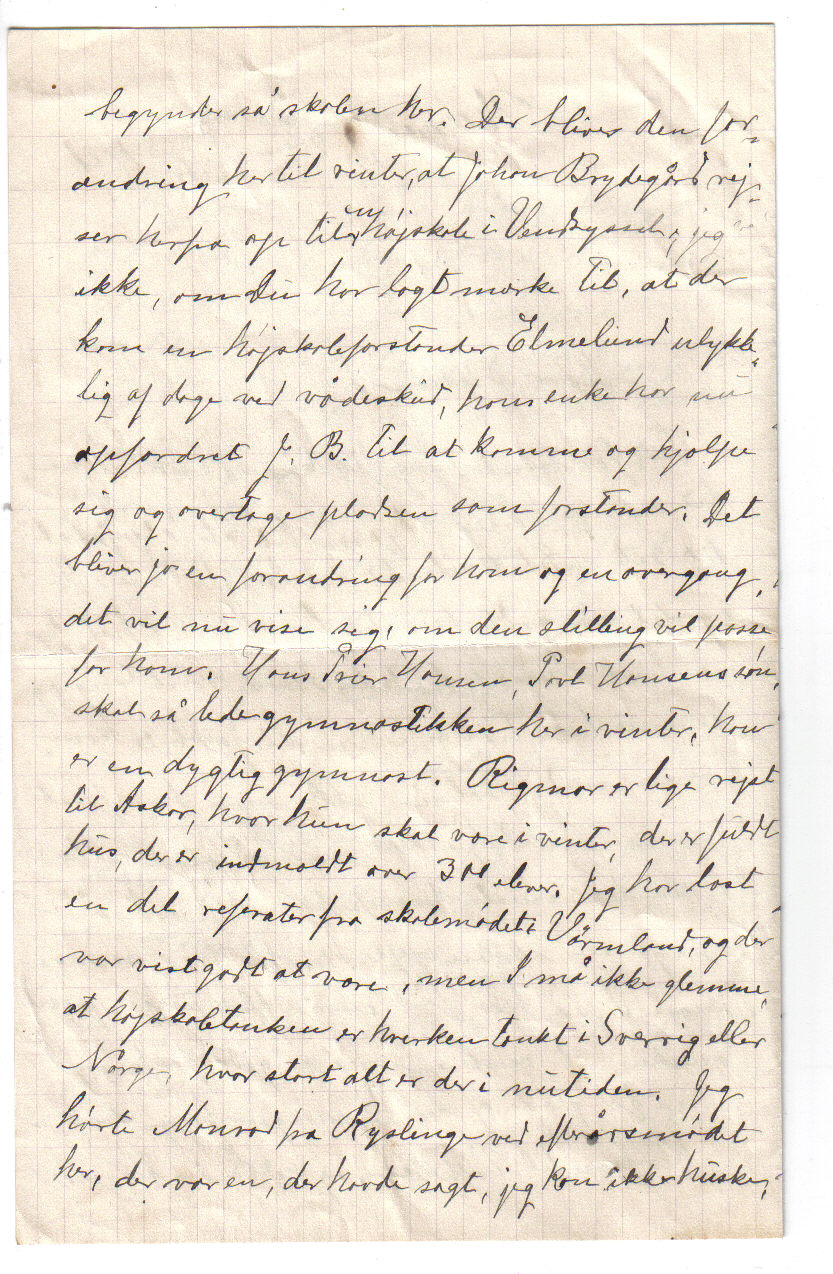 begynder så skolen her. Der bliver den for-
andring her til vinter, at Johan Brydegård rej-
ser herfra op til en højskole i Vendsyssel, jeg
ikke, om Du har lagt mærke til, at der
kom en højskoleforstander Elmelund ulykke-
lig af dage ved vådeskud, hans enke har nu
opfordret J. B. til at komme og hjælpe
sig og overtage pladsen som forstander. Det
bliver jo en forandring for ham og en overgang,
det vil nu vise sig, om den stilling vil passe
for ham. Hans Prier Hansen, Povl Hansens søn,
skal så lede gymnastikken her i vinter, han
er en dygtig gymnast. Rigmor er lige rejst
til Askov, hvor hun skal være i vinter, der er fuldt
hus, der er indmeldt over 300 elever. Jeg har læst
en del referater fra skolemødet i Värmland, og der
var vist godt at være, men I må ikke glemme,
at højskoletanken er hverken tænkt i Sverrig eller
Norge, hvor stort alt er der i nutiden. Jeg
hørte Monrad fra Ryslinge ved efterårsmødet
her, der var en, der havde sagt, jeg kan ikke huske,